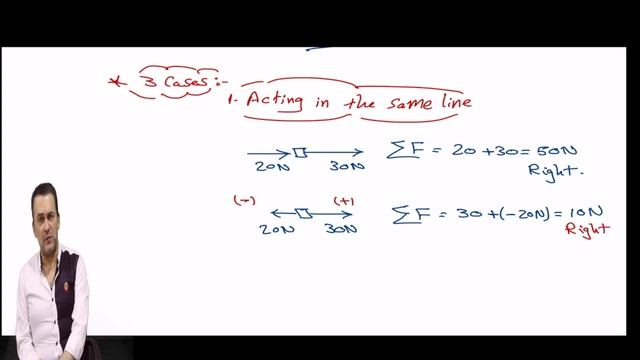 * 3 Cases:-
1. Acting in the same line
20N 30N ΣF = 20 + 30 = 50N
Right.
(-) (+)
20N 30N ΣF = 30 + (-20N) = 10N
Right